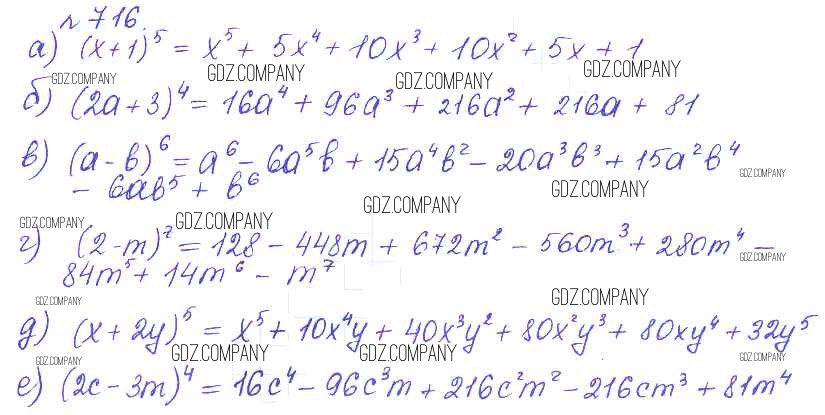 № 716.
а) (x+1)⁵ = x⁵ + 5x⁴ + 10x³ + 10x² + 5x + 1
GDZ.COMPANY GDZ.COMPANY GDZ.COMPANY GDZ.COMPANY
б) (2a+3)⁴ = 16a⁴ + 96a³ + 216a² + 216a + 81
в) (a-b)⁶ = a⁶ - 6a⁵b + 15a⁴b² - 20a³b³ + 15a²b⁴
GDZ.COMPANY
- 6ab⁵ + b⁶ GDZ.COMPANY
GDZ.COMPANY GDZ.COMPANY GDZ.COMPANY
г) (2-m)⁷ = 128 - 448m + 672m² - 560m³ + 280m⁴ -
GDZ.COMPANY
84m⁵ + 14m⁶ - m⁷
GDZ.COMPANY GDZ.COMPANY
д) (x+2y)⁵ = x⁵ + 10x⁴y + 40x³y² + 80x²y³ + 80xy⁴ + 32y⁵
GDZ.COMPANY GDZ.COMPANY GDZ.COMPANY GDZ.COMPANY
е) (2c-3m)⁴ = 16c⁴ - 96c³m + 216c²m² - 216cm³ + 81m⁴